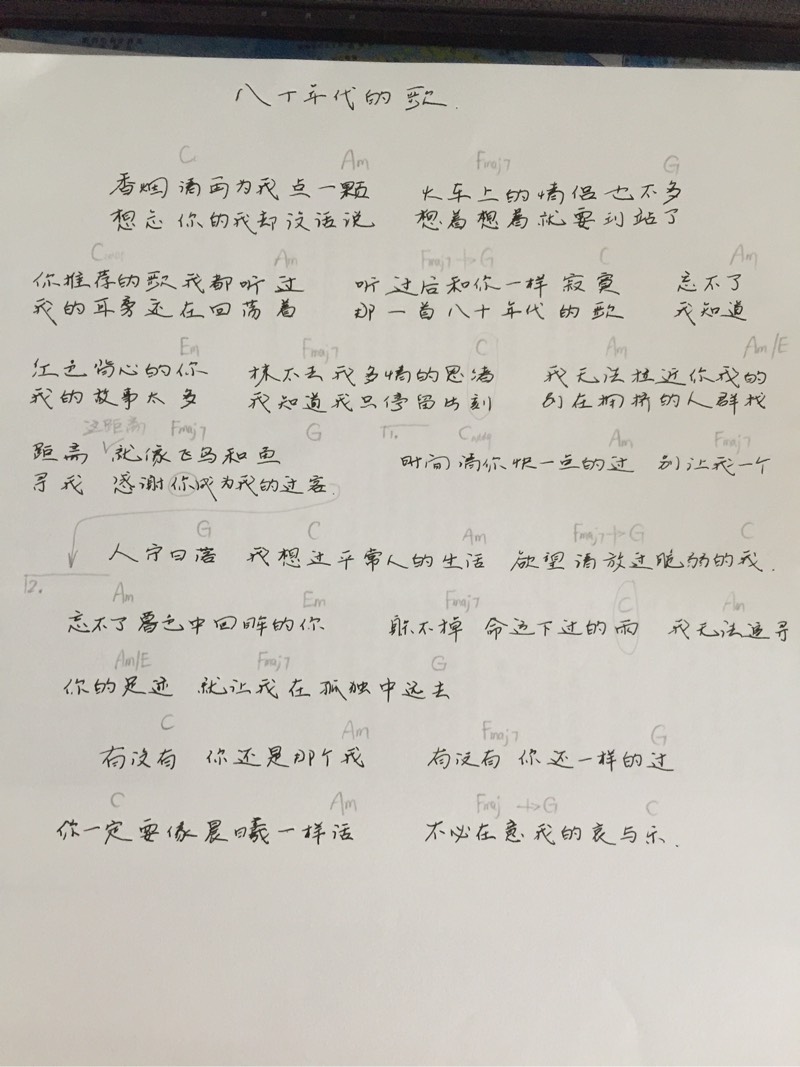 八十年代的歌.
C Am Fmaj7 G
香烟请再为我点一颗 火车上的情侣也不多
想忘你的我却没话说 想着想着就要到站了
Am Fmaj7→G C Am
你推荐的歌我都听过 听过后和你一样寂寞 忘不了
我的耳旁还在回荡着 那一首八十年代的歌 我知道
Em Fmaj7 C Am Am/E
红色背心的你 抹不去我多情的思绪 我无法拉近你我的
我的故事太多 我知道我只停留片刻 别在拥挤的人群找
这距离 Fmaj7 G T1. Am Fmaj7
距离 就像飞鸟和鱼 时间请你快一点的过 别让我一个
寻我 感谢你成为我的过客
G C Am Fmaj7→G C
人守日落 我想过平常人的生活 欲望请放过脆弱的我.
T2.
Am Em Fmaj7 C Am
忘不了暮色中回眸的你 躲不掉 命运下过的雨 我无法追寻
Am/E Fmaj7 G
你的足迹 就让我在孤独中远去
C Am Fmaj7 G
有没有 你还是那个我 有没有 你还一样的过
C Am Fmaj→G C
你一定要像晨曦一样活 不必在意我的哀与乐.